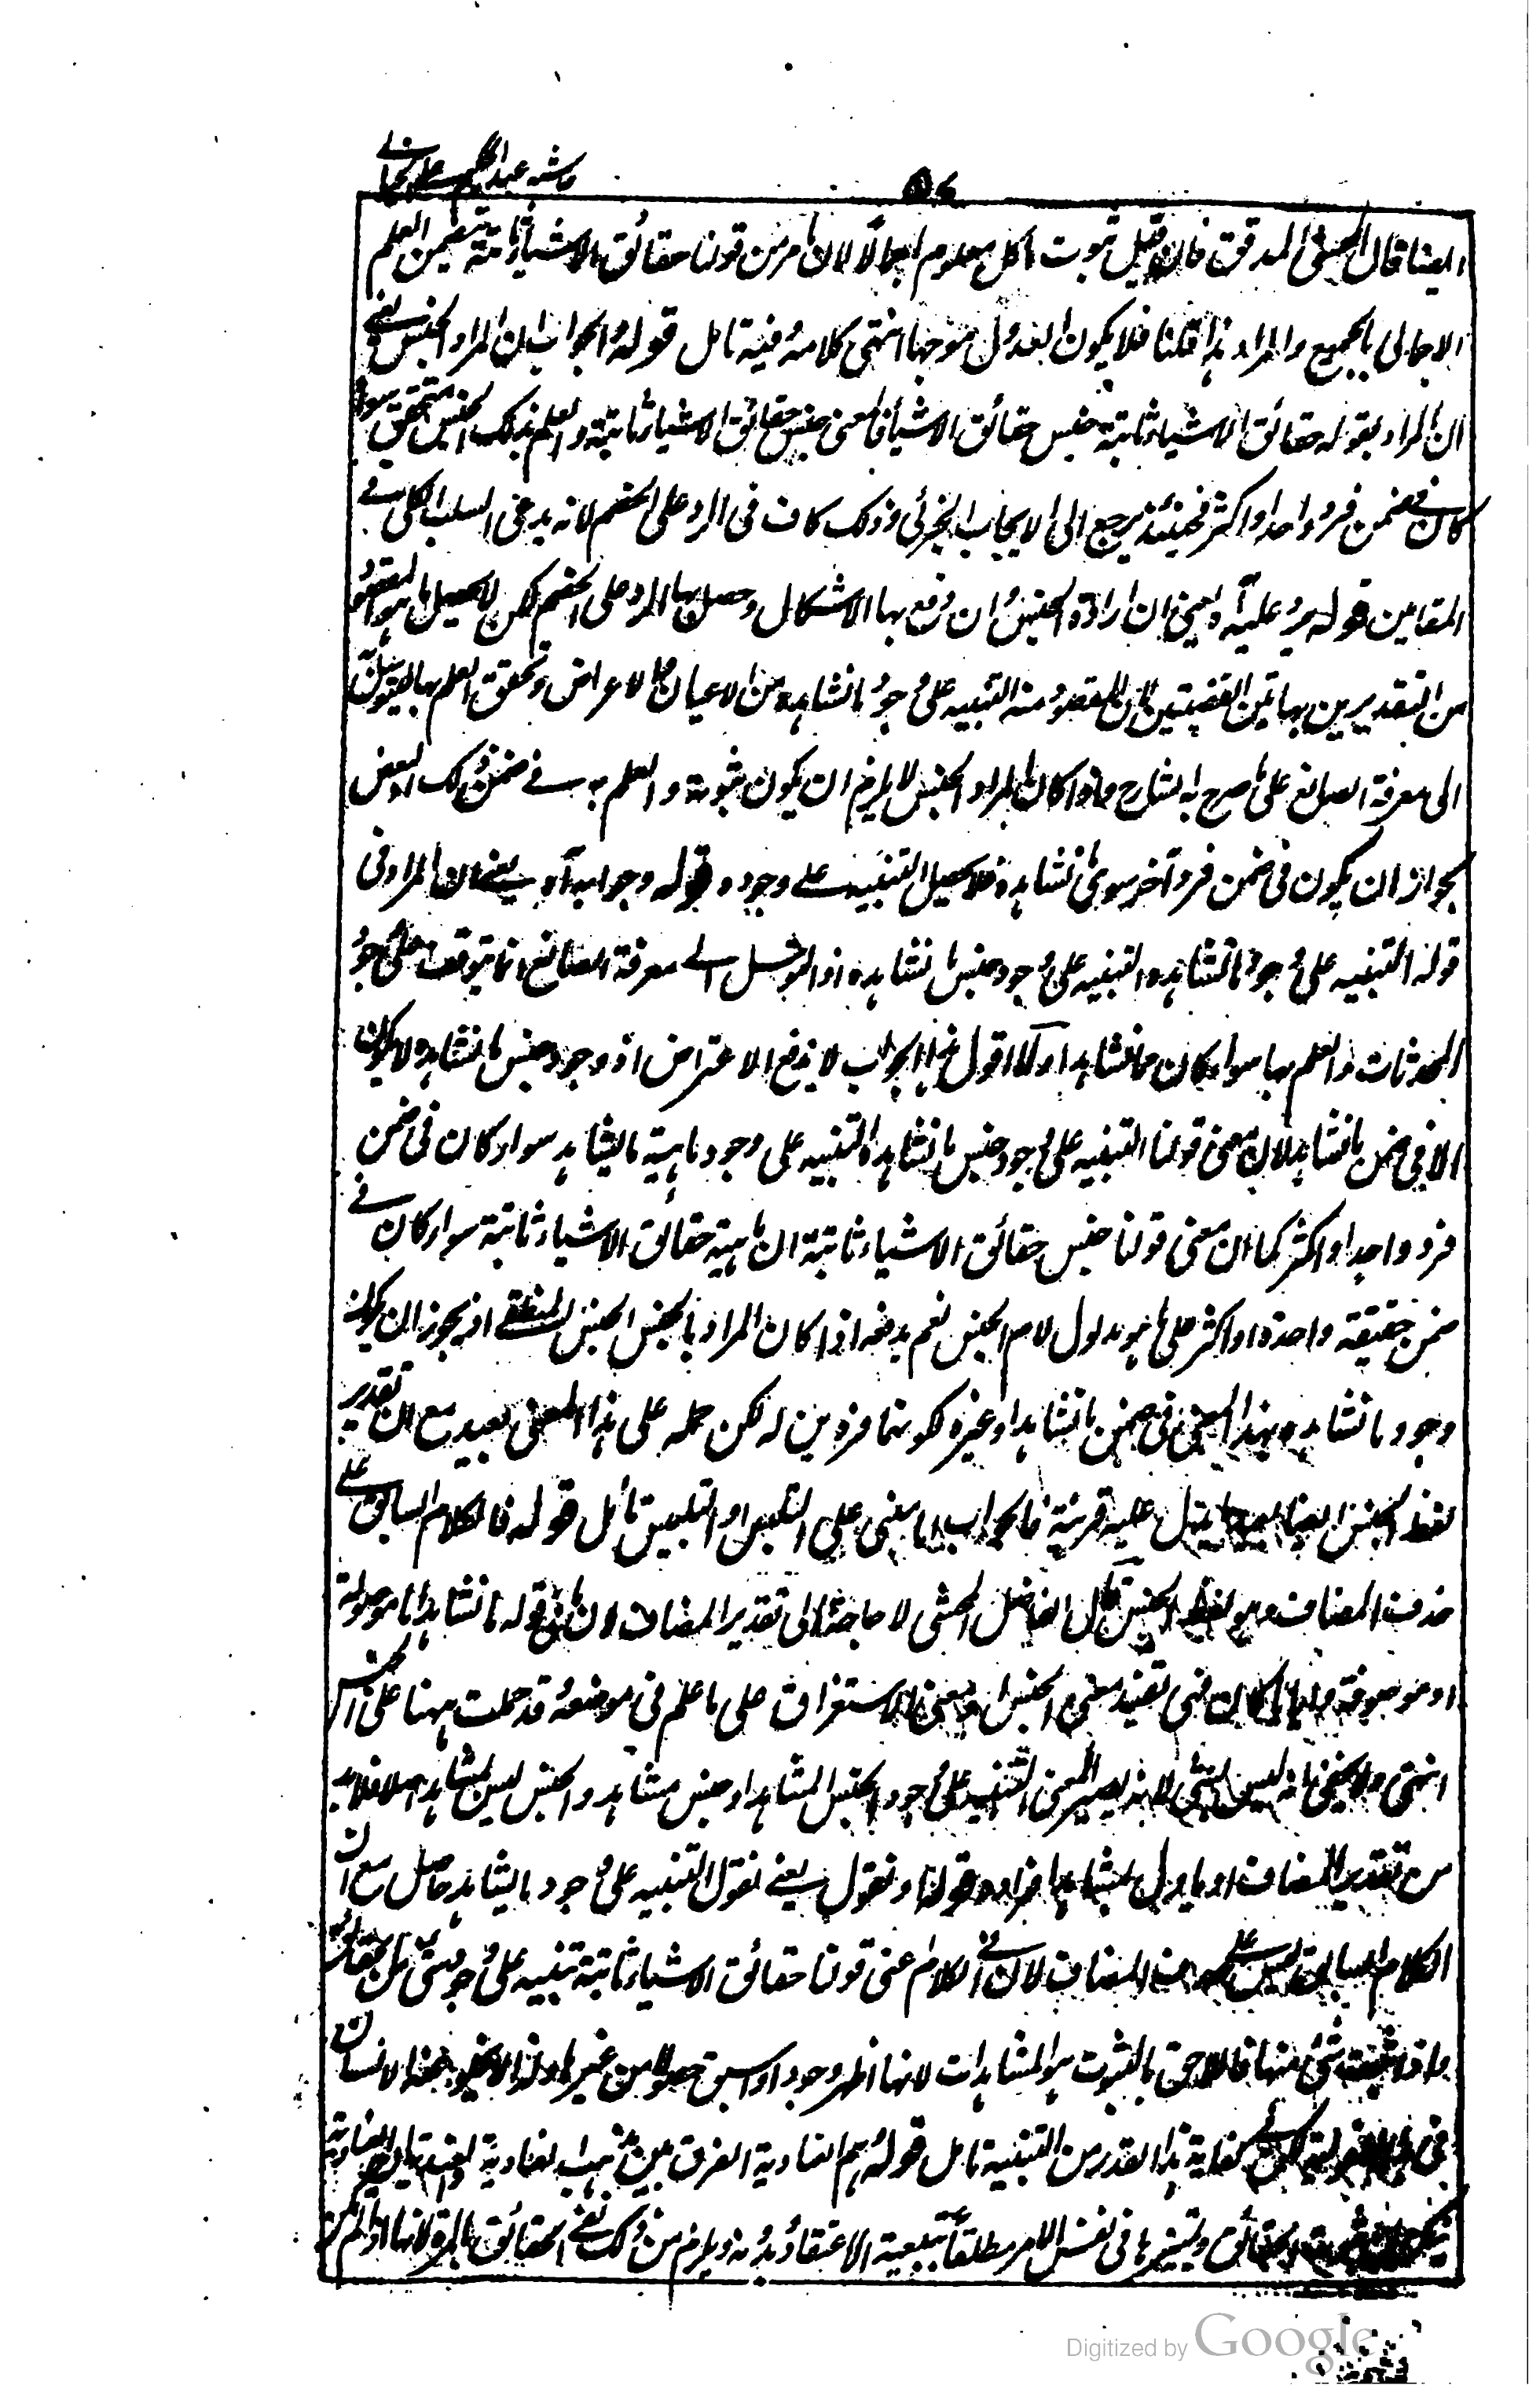 حاشيه عبد الحكيم على الخيالى
٥٤
ايضا قال المحشى المدقق فان قيل ثبوت الكل معلوم اجمالا لان ما مر من قولنا حقائق الاشياء ثابتة يتضمن العلم
الاجمالى بالجميع والمراد هذا قلنا فلا يكون العدول موجها انتهى كلامه وفيه تامل قوله والجواب ان المراد الجنس يعنى
ان المراد بقوله حقائق الاشياء ثابتة جنس حقائق الاشياء فالمعنى جنس حقائق الاشياء ثابتة والعلم بذلك الجنس متحقق سواء
كان فى ضمن فرد واحد او اكثر فحينئذ يرجع الى الايجاب الجزئى وذلك كاف فى الرد على الخصم لانه يدعى السلب الكلى فى
المقامين قوله يرد عليه آه يعنى ان ارادة الجنس وان دفع بها الاشكال وحصل بها الرد على الخصم لكن لا يحصل ما هو المقصود
من التقديرين بهاتين القضيتين لان المقصود منه التنبيه على وجود ما نشاهده من الاعيان والاعراض وتحقق العلم بها ليتوسل به
الى معرفة الصانع على ما صرح به الشارح واذا كان المراد الجنس لا يلزم ان يكون ثبوته والعلم به فى ضمن ذلك البعض
لجواز ان يكون فى ضمن فرد آخر سوى ما نشاهده فلا يحصل التنبيه على وجوده قوله وجوابه آه يعنى ان المراد فى
قوله التنبيه على وجود ما نشاهده التنبيه على وجود جنس ما نشاهده اذ التوسل الى معرفة الصانع انما يتوقف على وجود
المحدثات والعلم بها سواء كان مما نشاهد او لا اقول هذا الجواب لا يدفع الاعتراض اذ وجود جنس ما نشاهده لا يكون
الا فى ضمن ما نشاهد لان معنى قولنا التنبيه على وجود جنس ما نشاهد التنبيه على وجود ماهية ما يشاهد سواء كان فى ضمن
فرد واحد او اكثر كما ان معنى قولنا جنس حقائق الاشياء ثابتة ان ماهية حقائق الاشياء ثابتة سواء كان فى
ضمن حقيقة واحدة او اكثر على ما هو مدلول لام الجنس نعم يدفعه اذا كان المراد بالجنس الجنس المنطقى اذ يجوز ان يكون
وجود ما نشاهده بهذا المعنى فى ضمن ما نشاهد او غيره لكونهما فردين له لكن حمله على هذا المعنى بعيد مع ان تقدير
لفظ الجنس ايضا بعيد لم يدل عليه قرينة فالجواب اما مبنى على التلبس او التلبيس تامل قوله فالكلام السابق على
حذف المضاف وهو لفظ الجنس قال الفاضل المحشى لا حاجة الى تقدير المضاف لان ما فى قوله ما نشاهد اما موصولة
او موصوفة واياما كان فهى تفيد معنى الجنس او معنى الاستغراق على ما علم فى موضعه قد حملت ههنا على الجنس
انتهى ولا يخفى انه ليس بشئ لانه يصير المعنى التنبيه على وجود الجنس المشاهد او جنس مشاهد والجنس ليس بمشاهد اصلا فلا بد
من تقدير المضاف او ياول بمشاهد افراده قوله او نقول يعنى نقول التنبيه على وجود ما يشاهد حاصل مع ان
الكلام السابق ليس على حذف المضاف لان فى الكلام عنى قولنا حقائق الاشياء ثابتة تنبيه على وجود شئ من الحقائق
واذا ثبت شئ منها فالاحق بالثبوت هو المشاهدات لانها اظهر وجودا واسبق حصولا من غيرها ولذا لا يخلو عنها الانسان
فى كفاية هذا القدر من التنبيه تامل قوله هم العنادية الفرق بين مذهب العنادية والعندية ان العنادية
ينكرون ثبوت الحقائق وتميزها فى نفس الامر مطلقا بتبعية الاعتقاد وبدونه ويلزم من ذلك نفى الحقائق بالمرة لانها اذا لم تكن